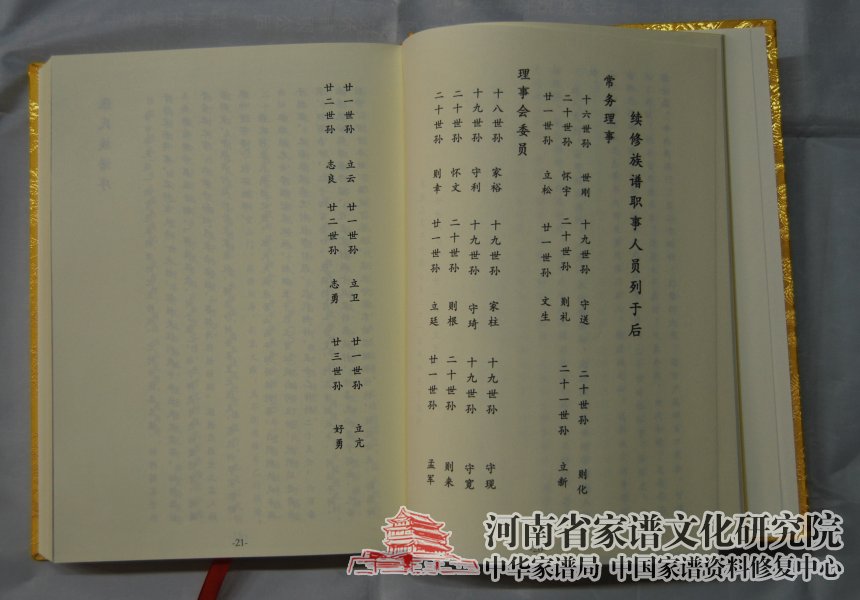 续修族谱职事人员列于后
常务理事
十六世孙 世刚 十九世孙 守送 二十世孙 则化
二十世孙 怀宇 二十世孙 则礼 二十一世孙 立新
廿一世孙 立松 廿一世孙 文生
理事会委员
十八世孙 家裕 十九世孙 家柱 十九世孙 守现
十九世孙 守利 十九世孙 守琦 十九世孙 守宽
二十世孙 怀文 二十世孙 则根 二十世孙 则来
二十世孙 则幸 廿一世孙 立廷 廿一世孙 孟军
廿一世孙 立云 廿一世孙 立卫 廿一世孙 立亢
廿二世孙 志良 廿二世孙 志勇 廿三世孙 好勇
-21-
河南省家谱文化研究院
中华家谱局 中国家谱资料修复中心